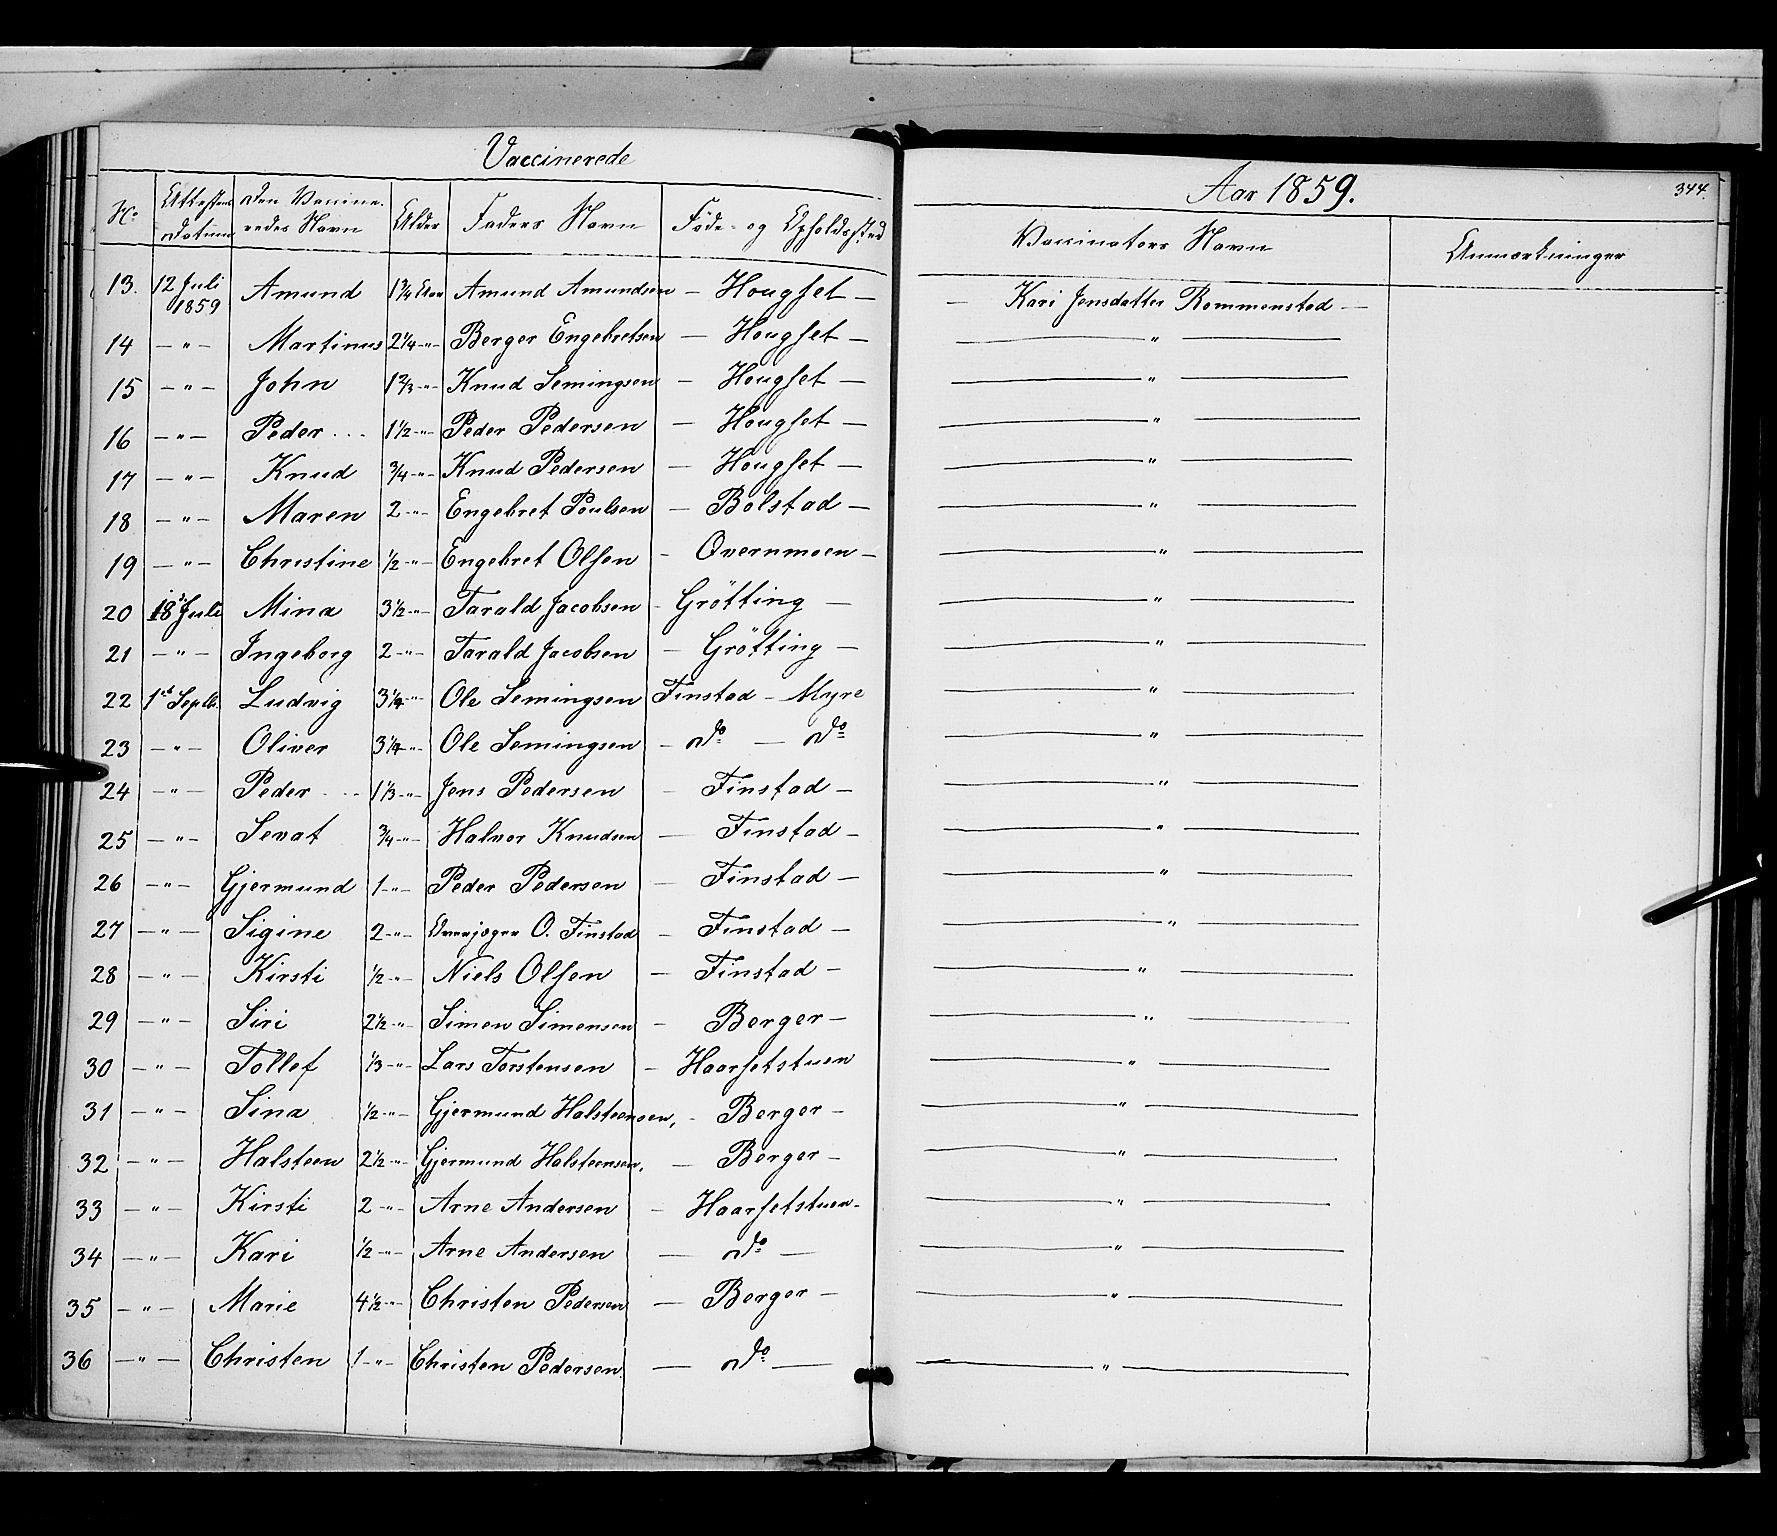 Vaccinerede
Aar 1859.
344.
No Attestens Datum Den Vaccineredes Navn Alder Faders Navn Føde- og Opholdssted Vaccinators Navn Anmærkninger
13. 12 Juli 1859 Amund 1 3/4 Aar Amund Amundsen — Hougset — — Kari Jensdatter Rommenstad —
14 — " — Martinus 2 1/4 -"- Berger Engebretsen — Hougset — — " —
15 — " — John 1 2/3 -"- Knud Semingsen — Hougset — — " —
16 — " — Peder ... 1 1/2 -"- Peder Pedersen — Hougset — — " —
17 — " — Knud 3/4 -"- Knud Pedersen — Hougset — — " —
18 — " — Maren 2 -"- Engebret Poulsen — Bolstad — — " —
19 — " — Christine 1/2 -"- Engebret Olsen — Overnmoen — — " —
20 18 Juli Mina 3 1/2 -"- Tarald Jacobsen — Grötting — — " —
21 — " — Ingeborg 2 -"- Tarald Jacobsen — Grötting — — " —
22 1st Septb. Ludvig 3 1/4 -"- Ole Semingsen Finstad — Myre — " —
23 — " — Oliver 3 1/4 -"- Ole Semingsen — do — do — " —
24 — " — Peder ... 1 1/3 -"- Jens Pedersen — Finstad — — " —
25 — " — Sevat 3/4 -"- Halvor Knudsen — Finstad — — " —
26 — " — Gjermund 1 -"- Peder Pedersen — Finstad — — " —
27 — " — Sigine 2 -"- O. Finstad — Finstad — — " —
28 — " — Kirsti 1/2 -"- Niels Olsen — Finstad — — " —
29 — " — Siri 2 1/2 -"- Simen Simensen — Berger — — " —
30 — " — Tollef 1/3 -"- Lars Torstensen — Haarsetstuen — " —
31 — " — Sina 1/2 -"- Gjermund Halsteensen, — Berger — — " —
32 — " — Halsteen 2 1/2 -"- Gjermund Halsteensen. — Berger — — " —
33 — " — Kirsti 2 -"- Arne Andersen — Haarsetstuen — — " —
34 — " — Kari 1/2 -"- Arne Andersen — do — — " —
35 — " — Marie 4 1/2 -"- Christen Pedersen — Berger — — " —
36 — " — Christen 1 -"- Christen Pedersen. — do — — " —